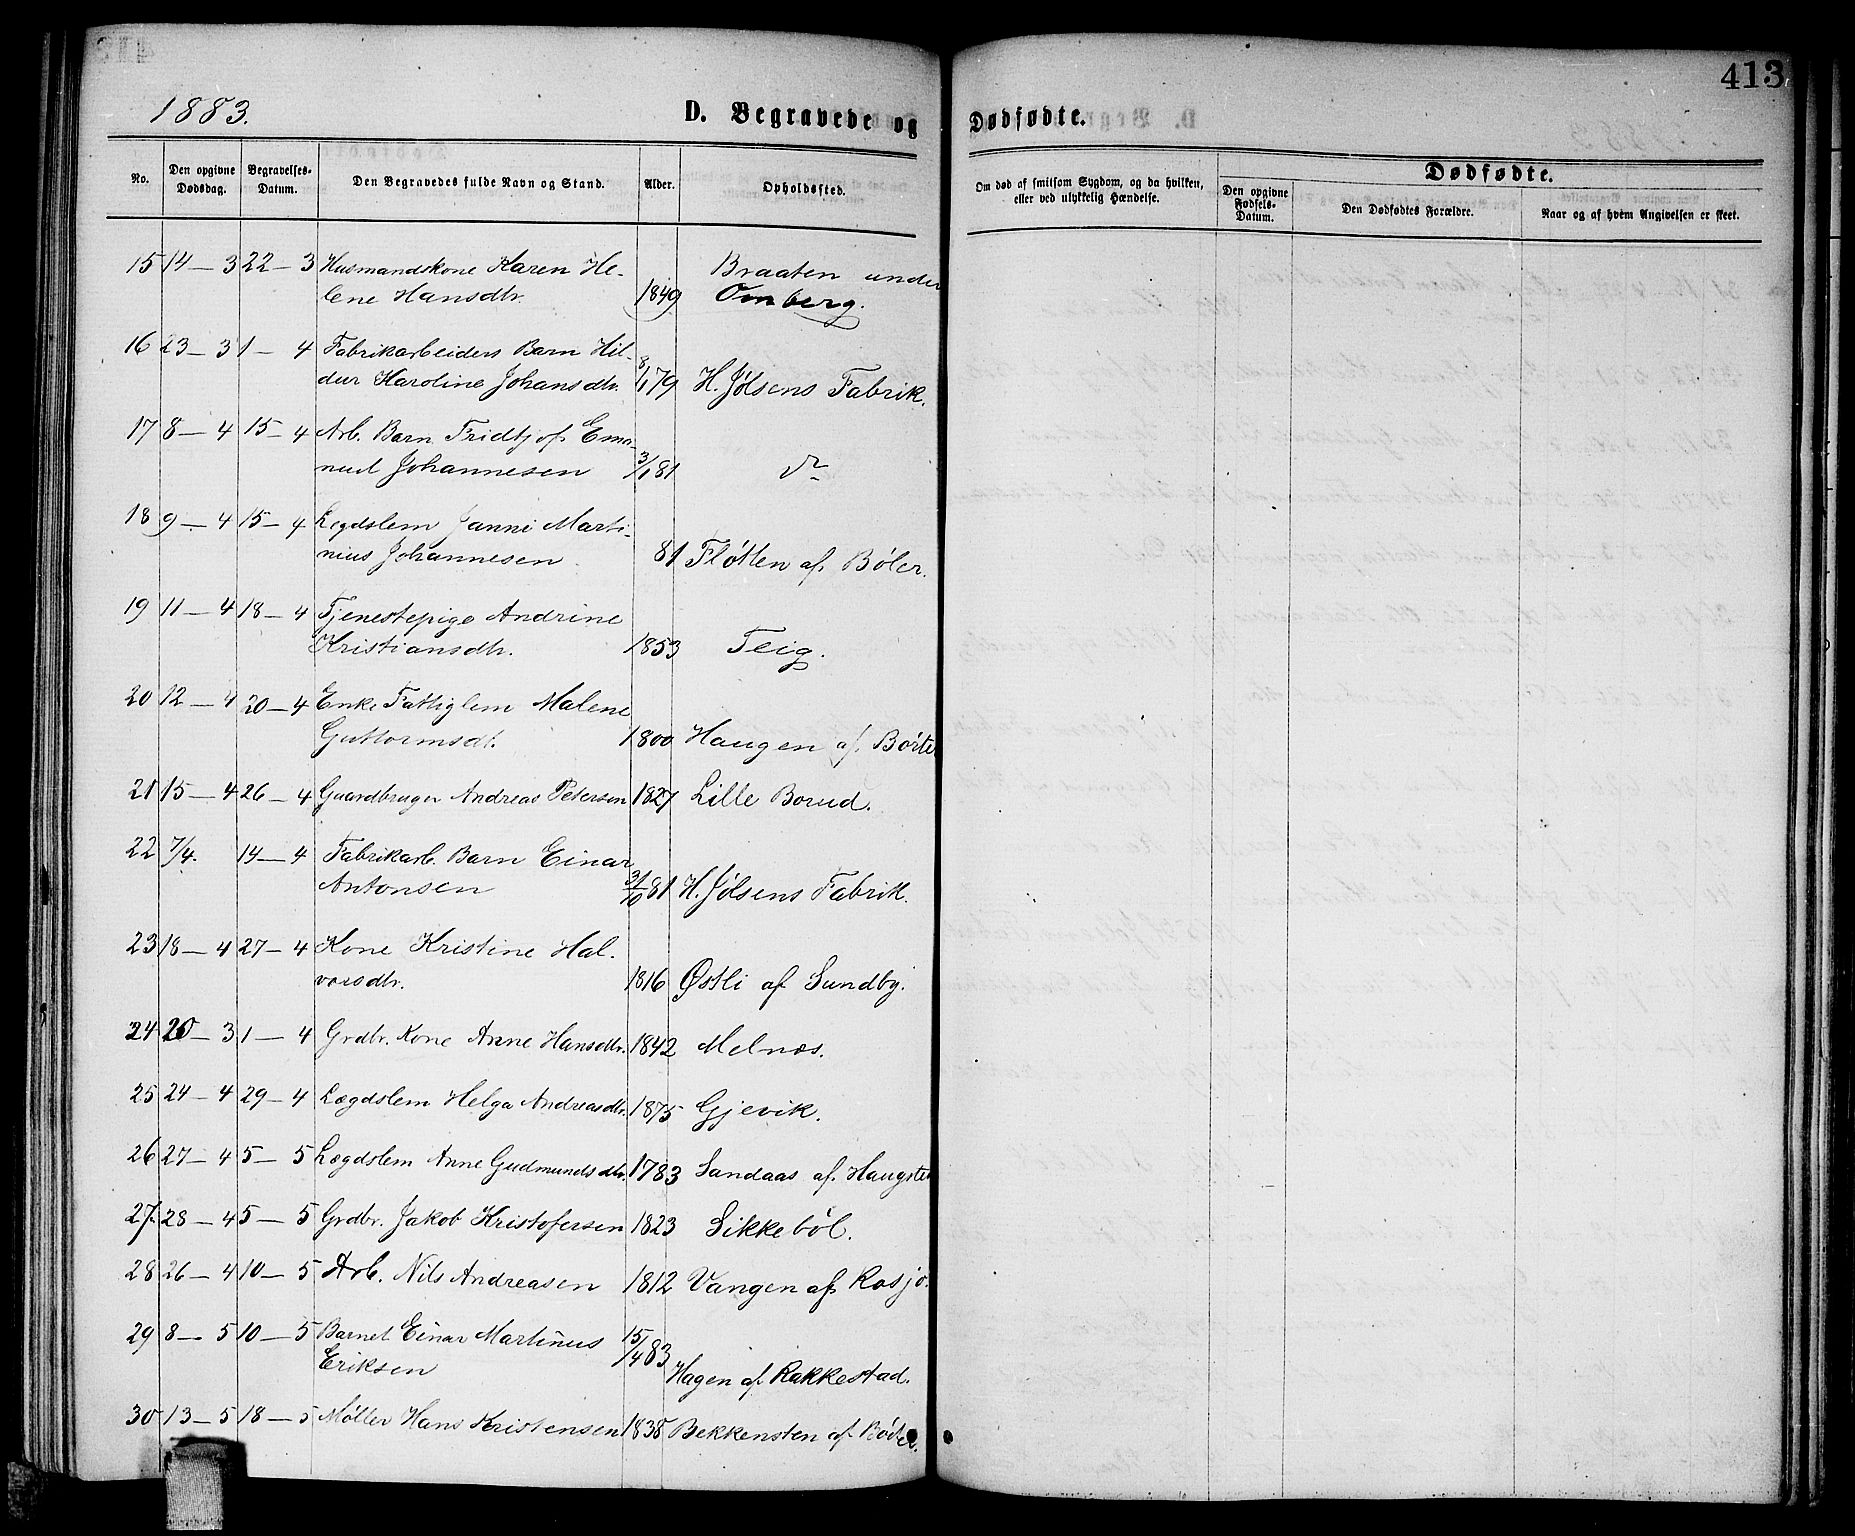 413
1883.
D. Begravede og Dødfødte.
No.
Den opgivne Dødsdag.
Begravelses-Datum.
Den Begravedes fulde Navn og Stand.
Alder.
Opholdssted.
Om død af smitsom Sygdom, og da hvilken, eller ved ulykkelig Hændelse.
Dødfødte.
Den opgivne Fødsels-Datum.
Den Dødfødtes Forældre.
Naar og af hvem Angivelsen er skeet.
15 14 — 3 22 — 3 Husmandskone Karen He- Braaten under
lene Hansdtr. 1849 Omberg.
16 23 — 3 1 — 4 Fabrikarbeiders Barn Hil-
dur Karoline Johansdtr. 8/1 79 H. Jølsens Fabrik.
17 8 — 4 15 — 4 Arb. Barn Fridtjof Ema-
nuel Johannesen 3/1 81 do
18 9 — 4 15 — 4 Lægdslem Janni Marti-
nius Johannesen 81 Fløtten af Bøler.
19 11 — 4 18 — 4 Tjenestepige Andrine
Kristiansdtr. 1853 Teig.
20 12 — 4 20 — 4 Enke Fattiglem Malene
Guttormsdt. 1800 Haugen af Børte
21 15 — 4 26 — 4 Gaardbruger Andreas Petersen 1827 Lille Borud.
22 7/4. 14 — 4 Fabrikarb. Barn Einar
Antonsen 31/10 81 H. Jølsens Fabrik.
23 18 — 4 27 — 4 Kone Kristine Hal-
vorsdtr. 1816 Østli af Sundby.
24 20 — 3 1 — 4 Grdbr. Kone Anne Hansdtr. 1842 Melnæs.
25 24 — 4 29 — 4 Lægdslem Helga Andreasdtr. 1875 Gjevik.
26 27 — 4 5 — 5 Lægdslem Anne Gudmundsdtr. 1783 Sandaas af Haugsten
27. 28 — 4 5 — 5 Grdbr. Jakob Kristofersen 1823 Sikkebøl.
28 26 — 4 10 — 5 Arb. Nils Andreasen 1812 Vangen af Rosjø.
29 8 — 5 10 — 5 Barnet Einar Martinus 15/4 83
Eriksen Hagen af Rakkestad.
30 13 — 5 18 — 5 Møller Hans Kristensen 1838 Bekkensten af